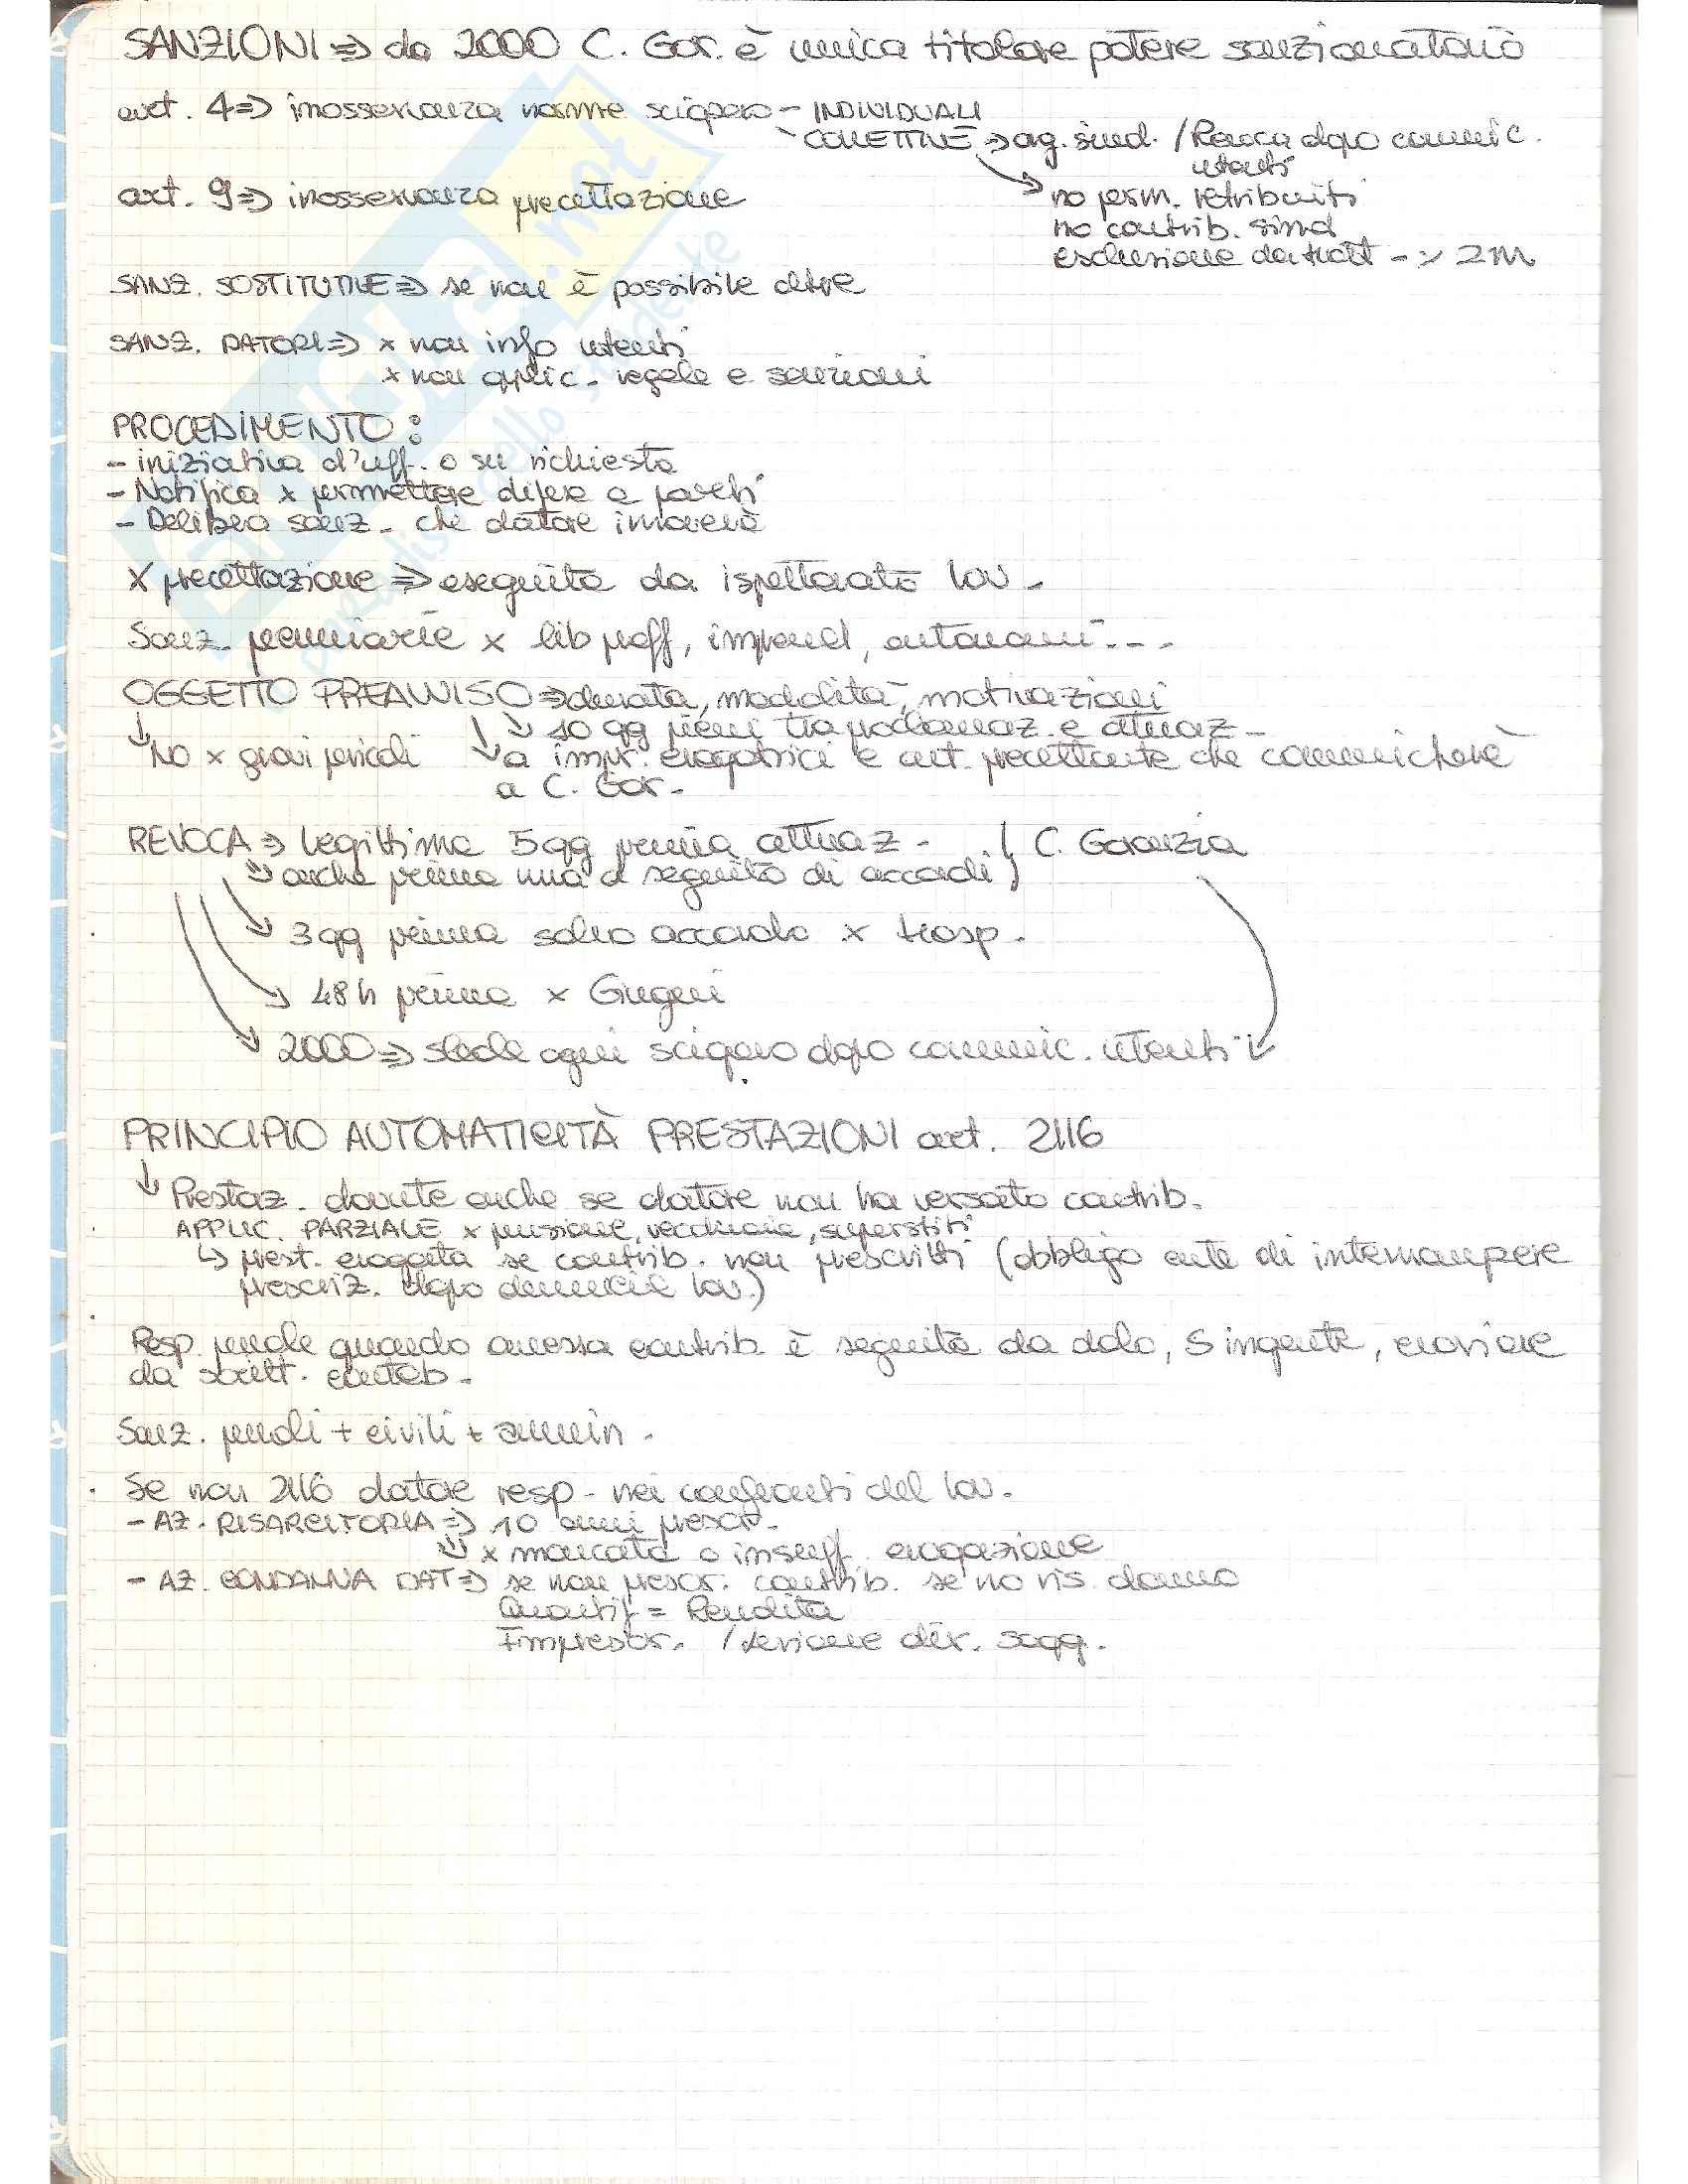 SANZIONI => da 2000 C. Gar. è unica titolare potere sanzionatorio
art. 4 => inosservanza norme sciopero - INDIVIDUALI
- COLLETTIVE => ag. sind. / Revoca dopo comunic.
utenti
art. 9 => inosservanza precettazione
no perm. retribuiti
no contrib. sind
esclusione da tratt -> 2m
SANZ. SOSTITUTIVE => se non è possibile altre
SANZ. DATORI => x non info utenti
x non applic. regole e sanzioni
PROCEDIMENTO:
- iniziativa d'uff. o su richiesta
- Notifica x permettere difesa a parti
- Delibera sanz. che datore
x precettazione => eseguita da ispettorato lav.
Sanz. pecuniarie x lib proff, imprend, autonomi...
OGGETTO PREAVVISO => durata, modalità, motivazioni
↓ ↘ 10 gg pieni tra proclamaz. e attuaz.
No x gravi pericoli ↘ a impr. erogatrici e aut. precettante che comunicherà
a C. Gar.
REVOCA => legittima 5gg prima attuaz. / C. Garanzia
anche prima ma a seguito di accordi
3 gg prima salvo accordo x trasp.
48 h prima x Giugni
2000 => slede ogni sciopero dopo comunic. utenti
PRINCIPIO AUTOMATICITÀ PRESTAZIONI art. 2116
↓ Prestaz. dovute anche se datore non ha versato contrib.
APPLIC. PARZIALE x pensione, vecchiaia, superstiti
↳ prest. erogata se contrib. non prescritti (obbligo ente di interrompere
prescriz. dopo denuncia lav.)
Resp. penale quando omessa contrib. è seguita da dolo, S ingente,
da scritt. contab.
Sanz. penali + civili + ammin.
Se non 2116 datore resp. nei confronti del lav.
- AZ. RISARCITORIA => 10 anni prescr.
↘ x mancata o insuff. erogazione
- AZ. CONDANNA DAT => se non prescr. contrib. se no ris. danno
Quantif = Rendita
Imprescr. / lesione dir. sogg.